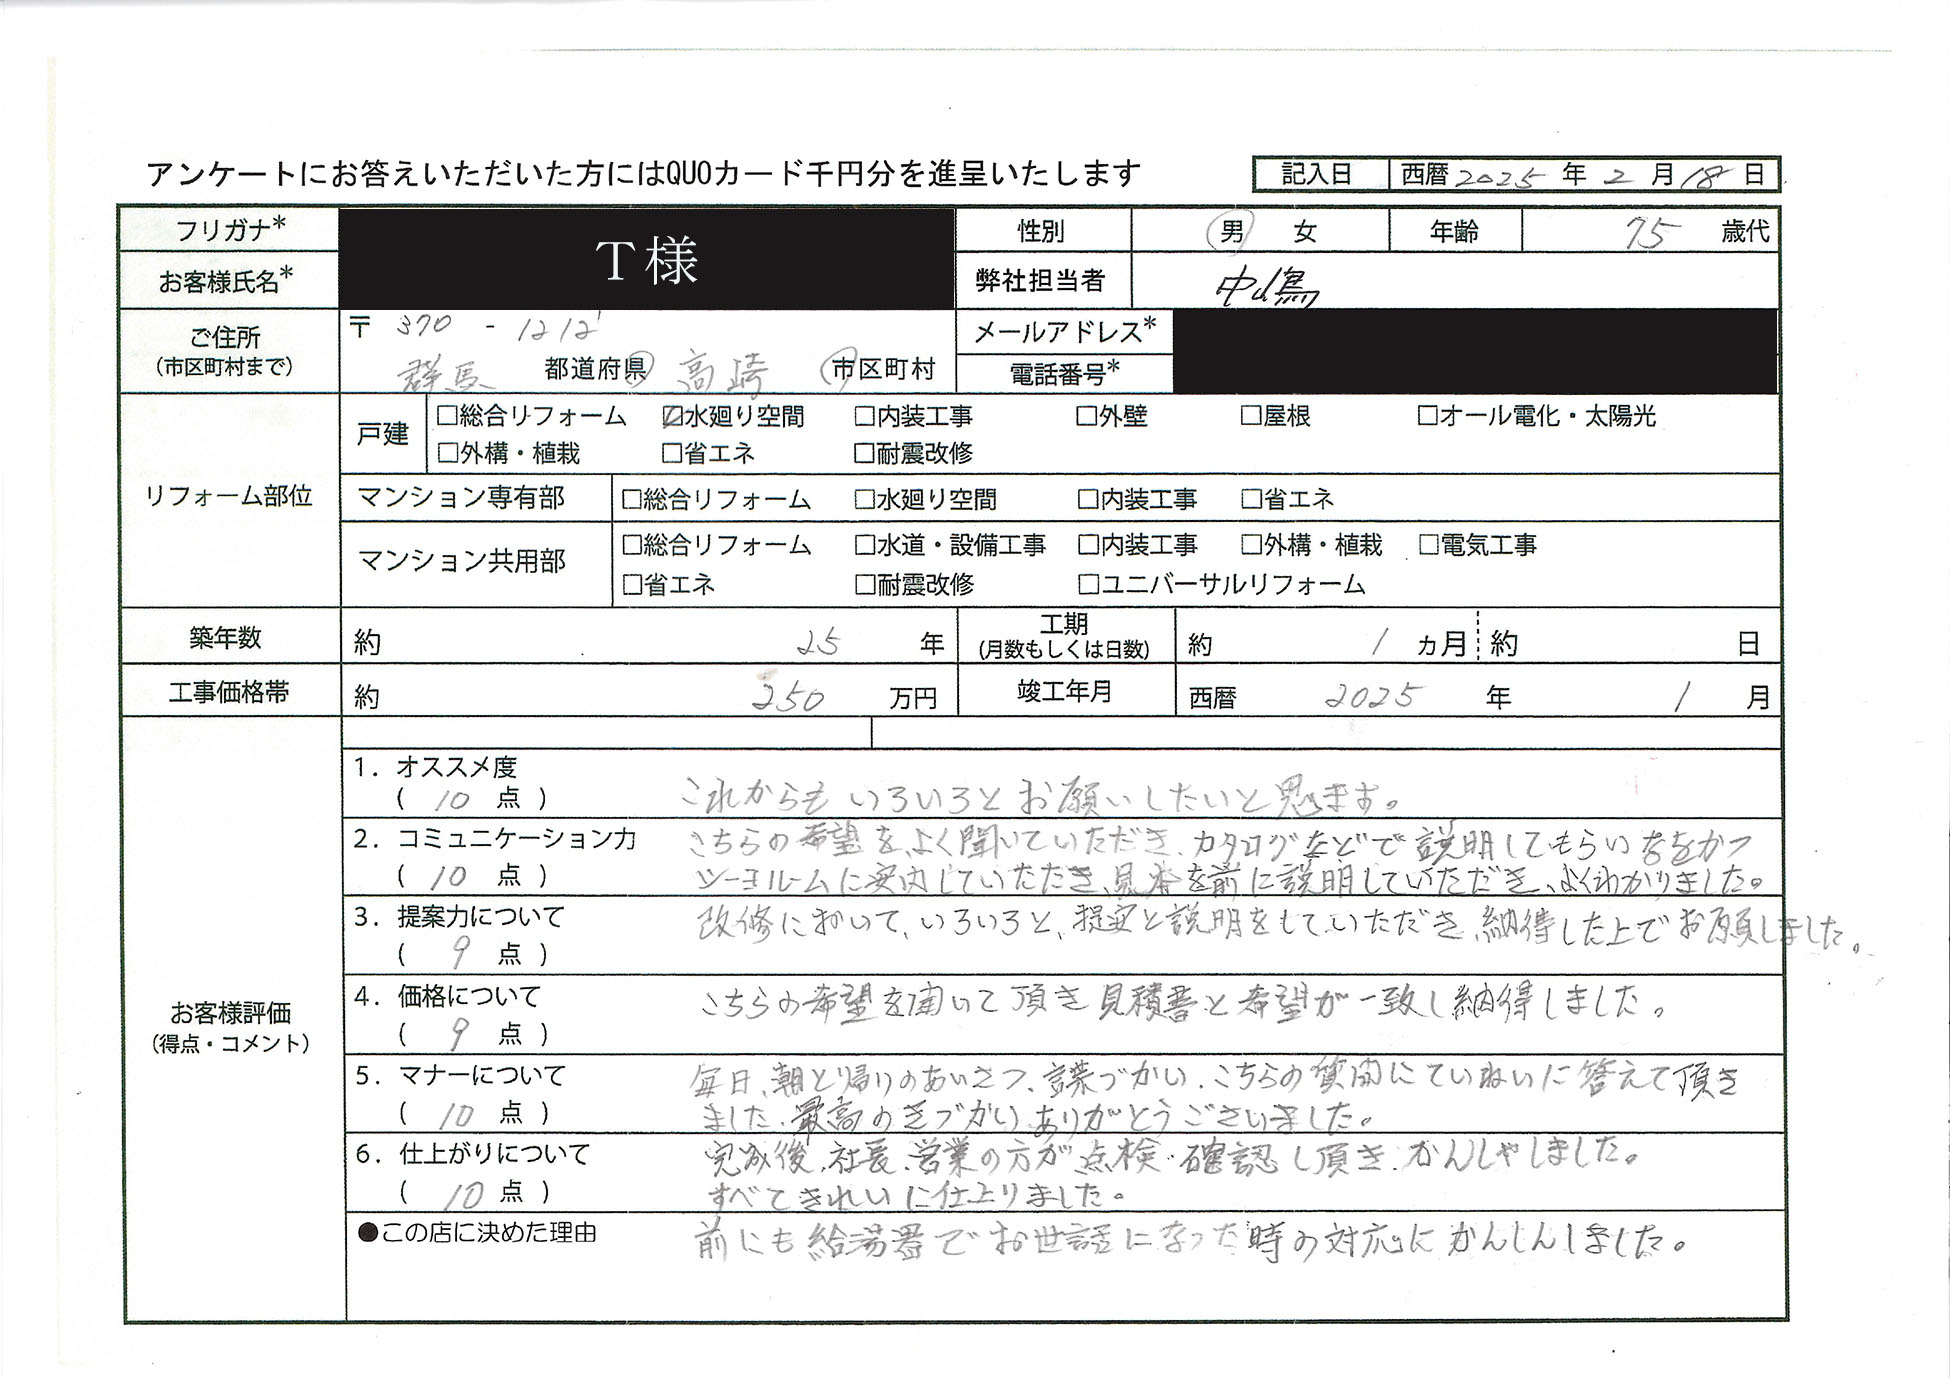 アンケートにお答えいただいた方にはQUOカード千円分を進呈いたします
記入日 西暦 2025 年 2 月 18 日
フリガナ* T様 性別 男 女 年齢 75 歳代
お客様氏名* 弊社担当者 中嶋
ご住所 〒 370 - 1212 メールアドレス*
(市区町村まで) 群馬 都道府県 高崎 市区町村 電話番号*
リフォーム部位
戸建 □総合リフォーム ☑水廻り空間 □内装工事 □外壁 □屋根 □オール電化・太陽光
□外構・植栽 □省エネ □耐震改修
マンション専有部 □総合リフォーム □水廻り空間 □内装工事 □省エネ
マンション共用部 □総合リフォーム □水道・設備工事 □内装工事 □外構・植栽 □電気工事
□省エネ □耐震改修 □ユニバーサルリフォーム
築年数 約 25 年 工期 (月数もしくは日数) 約 1 ヵ月 約 日
工事価格帯 約 250 万円 竣工年月 西暦 2025 年 1 月
お客様評価
(得点・コメント)
1. オススメ度
( 10 点 ) これからもいろいろとお願いしたいと思ます。
2. コミュニケーション力 こちらの希望を、よく聞いていただき、カタログなどで説明してもらいなおかつ
( 10 点 ) ショールームに案内していただき、見本を前に説明していただき、よくわかりました。
3. 提案力について 改修において、いろいろと、提案と説明をしていただき、納得した上でお願しました。
( 9 点 )
4. 価格について こちらの希望を聞いて頂き見積書と希望が一致し納得しました。
( 9 点 )
5. マナーについて 毎日、朝と帰りのあいさつ、言葉づかい、こちらの質問にていねいに答えて頂き
( 10 点 ) ました、最高のきづかいありがとうございました。
6. 仕上がりについて 完成後、社長、営業の方が点検・確認し頂き、かんしゃしました。
( 10 点 ) すべてきれいに仕上りました。
●この店に決めた理由 前にも給湯器でお世話になった時の対応にかんしんしました。